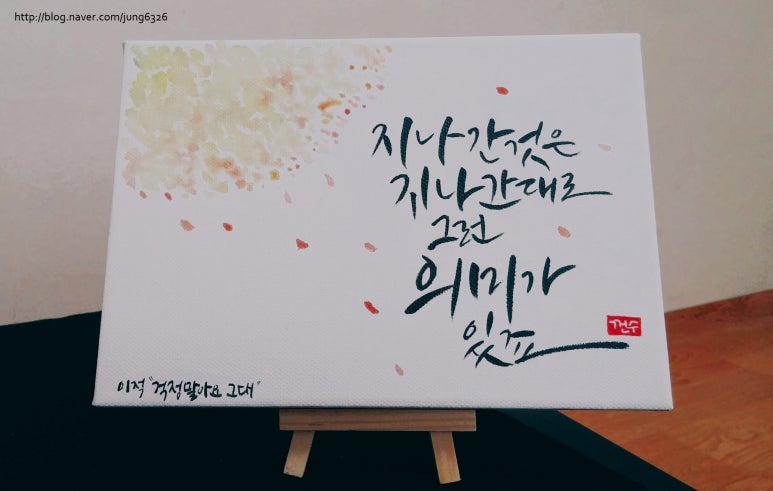 http://blog.naver.com/jung6326
지나간것은
지나간대로
그런
의미가
있죠
건수
이적 "걱정말아요 그대"